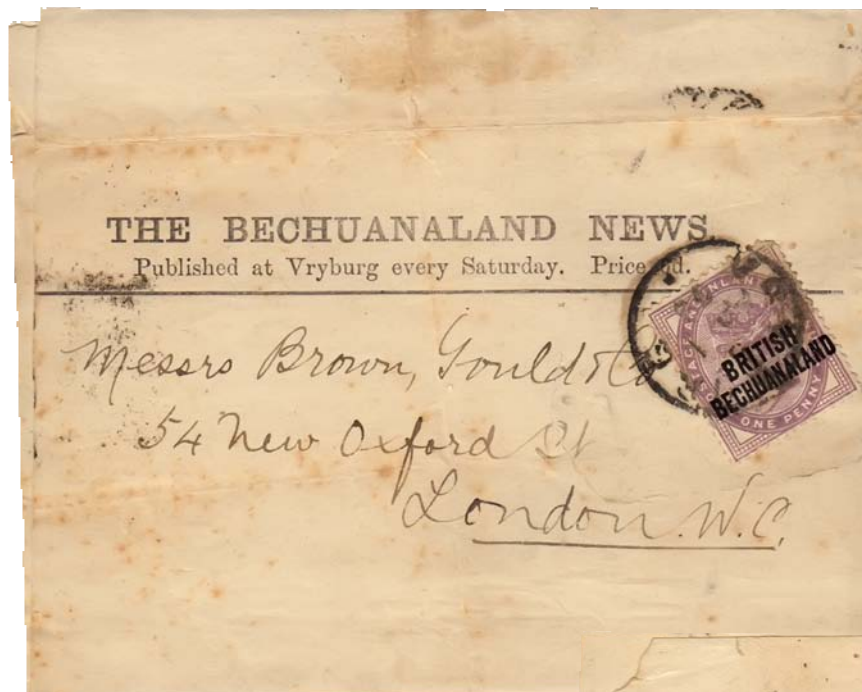 THE BECHUANALAND NEWS.
Published at Vryburg every Saturday. Price d.
Messrs Brown, Gould & Co
54 New Oxford St
London. W.C.
BRITISH
BECHUANALAND
ONE PENNY